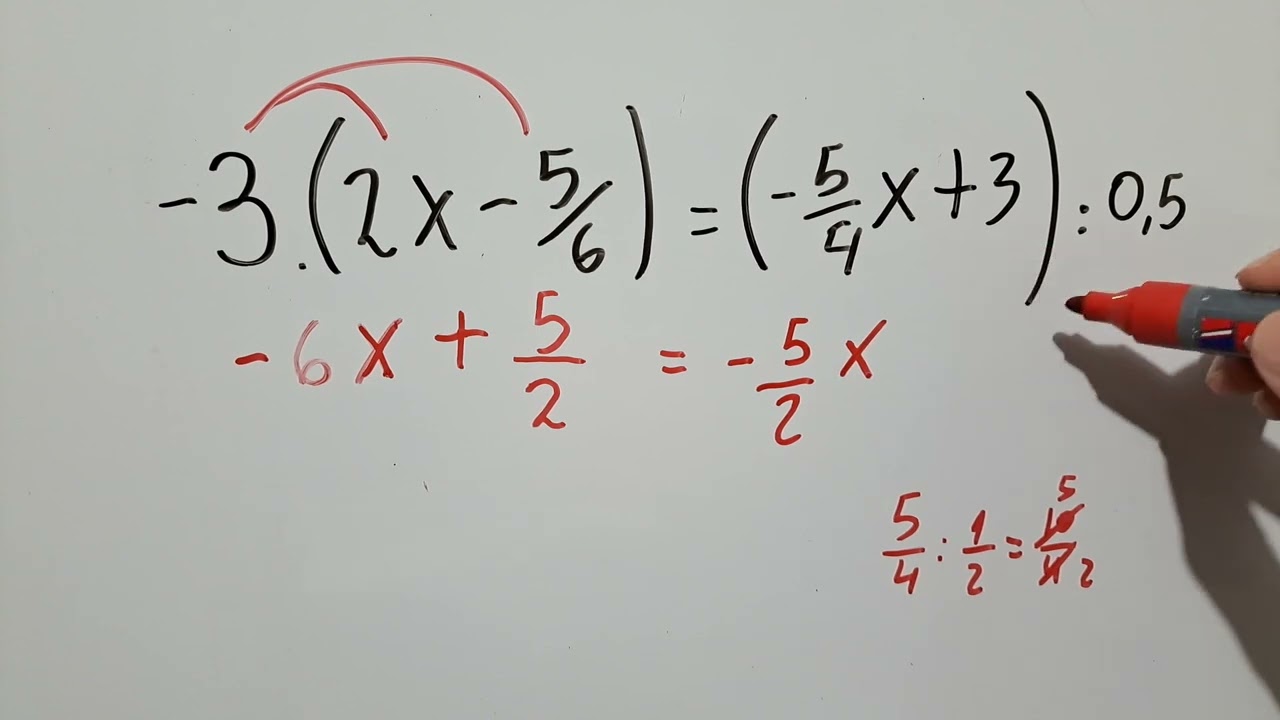 -3.(2x - 5/6) = (-5/4 x + 3) : 0,5
-6x + 5/2 = -5/2 x
5/4 : 1/2 = 10/4 5 2